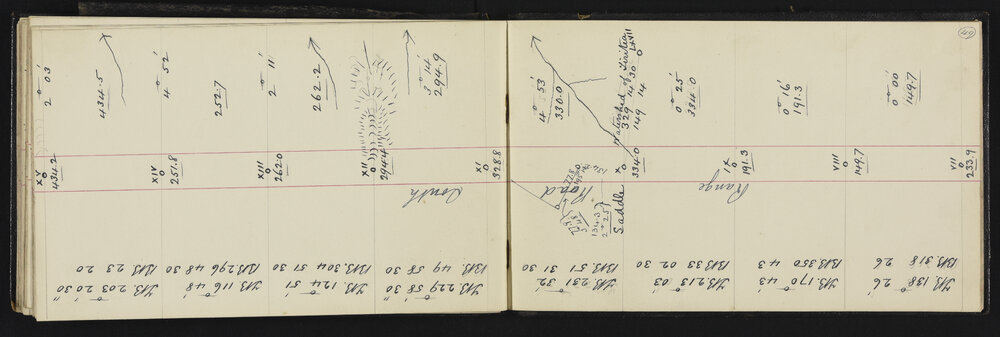 VII
233.9
FB 138° 26'
BB 318 26
0° 00'
149.7
VIII
149.7
FB 170° 43'
BB 350 43
0° 16'
191.3
IX
191.3
Range
FB 213° 03'
BB 33 02 30
0° 25'
334.0
X
334.0
Saddle
Road
134.3
2° 25'
Watershed of Tiritea
329 14 30 LXVII
149 14
FB 231° 32'
BB 51 31 30
4° 53'
330.0
XI
328.8
South
FB 229° 58' 30"
BB 49 58 30
3° 14'
294.9
XII
294.4
FB 124° 51'
BB 304 51 30
262.2
XIII
262.0
2° 11'
FB 116° 48'
BB 296 48 30
252.7
XIV
251.8
4° 52'
FB 203° 20' 30"
BB 23 20
434.5
XV
434.2
2° 03'